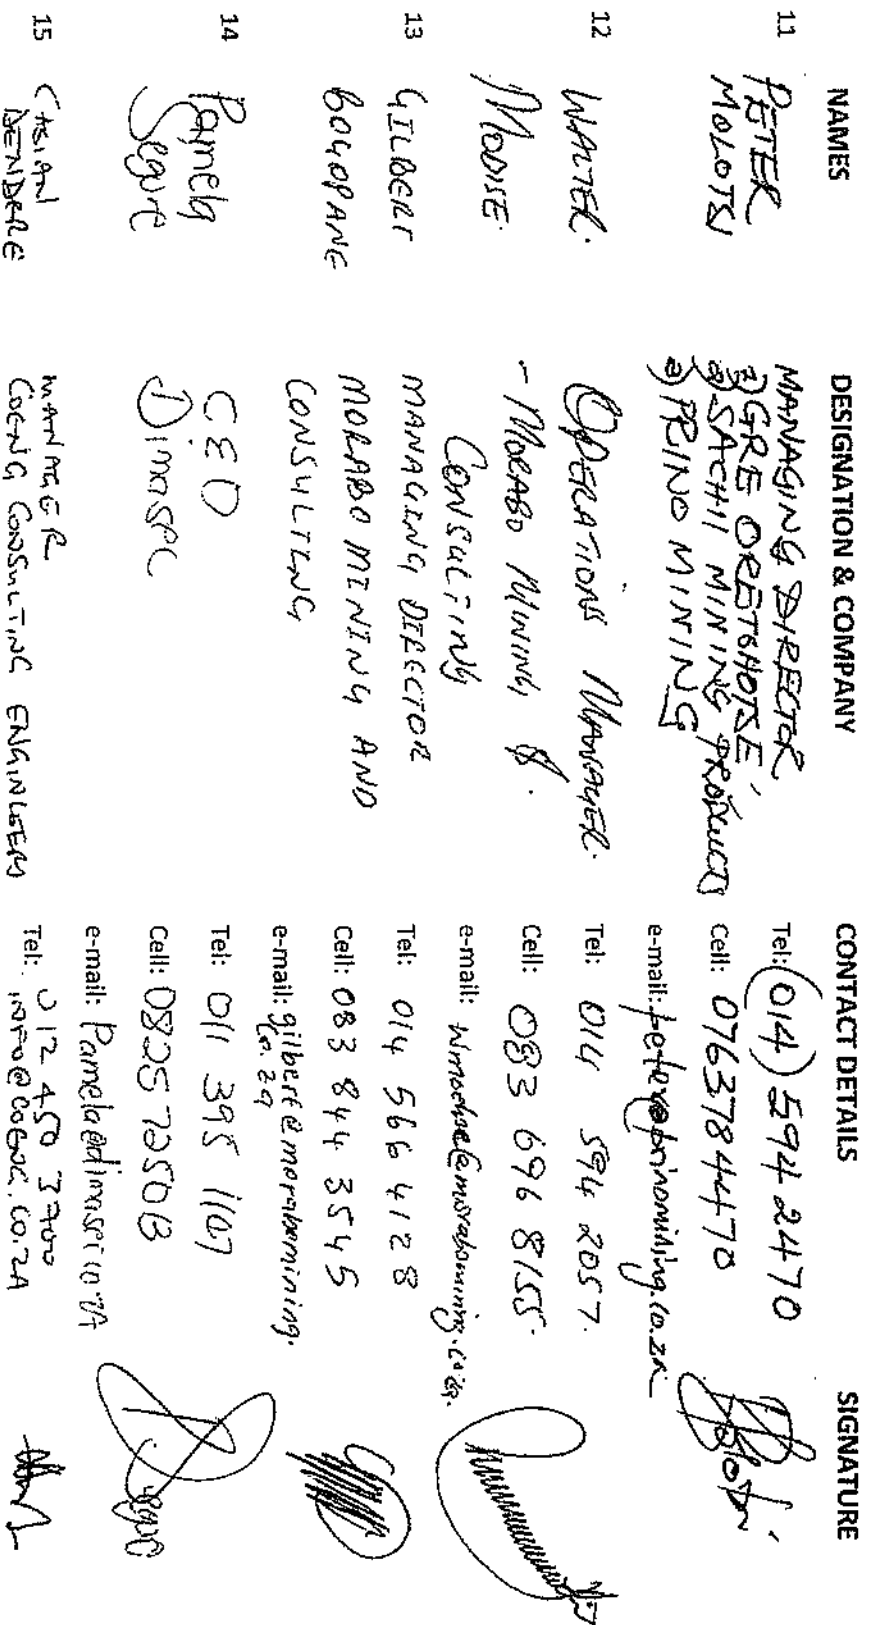 NAMES DESIGNATION & COMPANY CONTACT DETAILS SIGNATURE
11 PETER MOLOTSI
MANAGING DIRECTOR
1) GRE ORETSHOTSE,
2) SACHII MINING PRODUCTS
3) PRINO MINING
Tel: (014) 594 2470
Cell: 0763784470
e-mail: peter@prinomining.co.za
12 WALTER.
MODISE.
OPERATIONS MANAGER.
- MORABO MINING &.
CONSULTING
Tel: 014 594 2057.
Cell: 083 696 8155.
e-mail: wmodise@morabomining.co.za.
13 GILBERT
BOGOPANE
MANAGING DIRECTOR
MORABO MINING AND
CONSULTING
Tel: 014 566 4128
Cell: 083 844 3545
e-mail: gilbert@morabomining.
co.za
14 Pamela
Segure
CEO
Dimaspc
Tel: 011 395 1107
Cell: 0825
e-mail:
15
DENDERE
MANAGER
COENG CONSULTING ENGINEERS
Tel: 012 450 3700
info@coeng.co.za